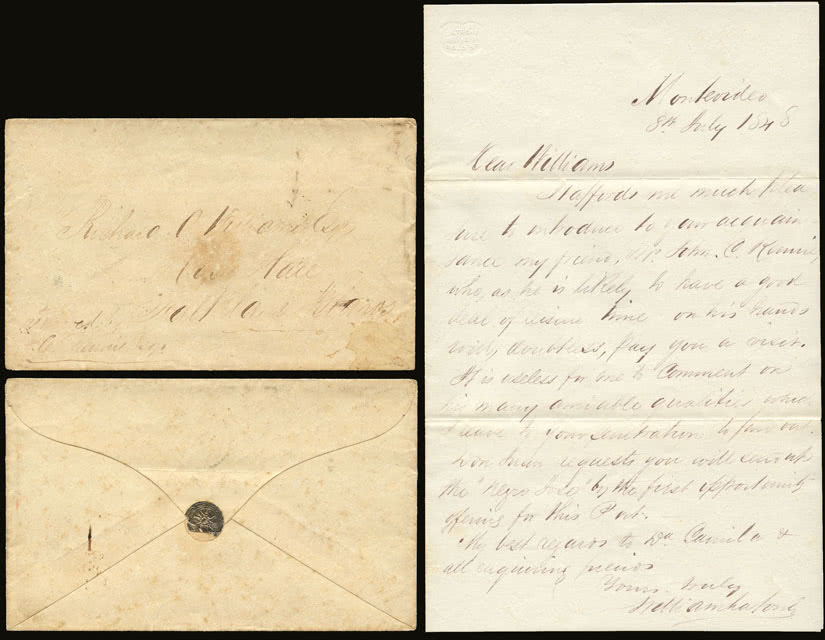 Richard C Williams Esq
Falkland Islands
Esq
Montevideo
8th July 1848
Dear Williams
It affords me much plea
sure to introduce to your acquain
tance my friend, Mr John. C.
who, as he is likely to have a good
deal of leisure time on his hands
will, doubtless, pay you a visit.
It is useless for me to comment on
his many amiable qualities which
I leave to your penetration to find out.
Don Juan requests you will send up
the "Negro José" by the first opportunity
offering for this Port.
My best regards to Da. Camila &
all enquiring friends
Yours truly